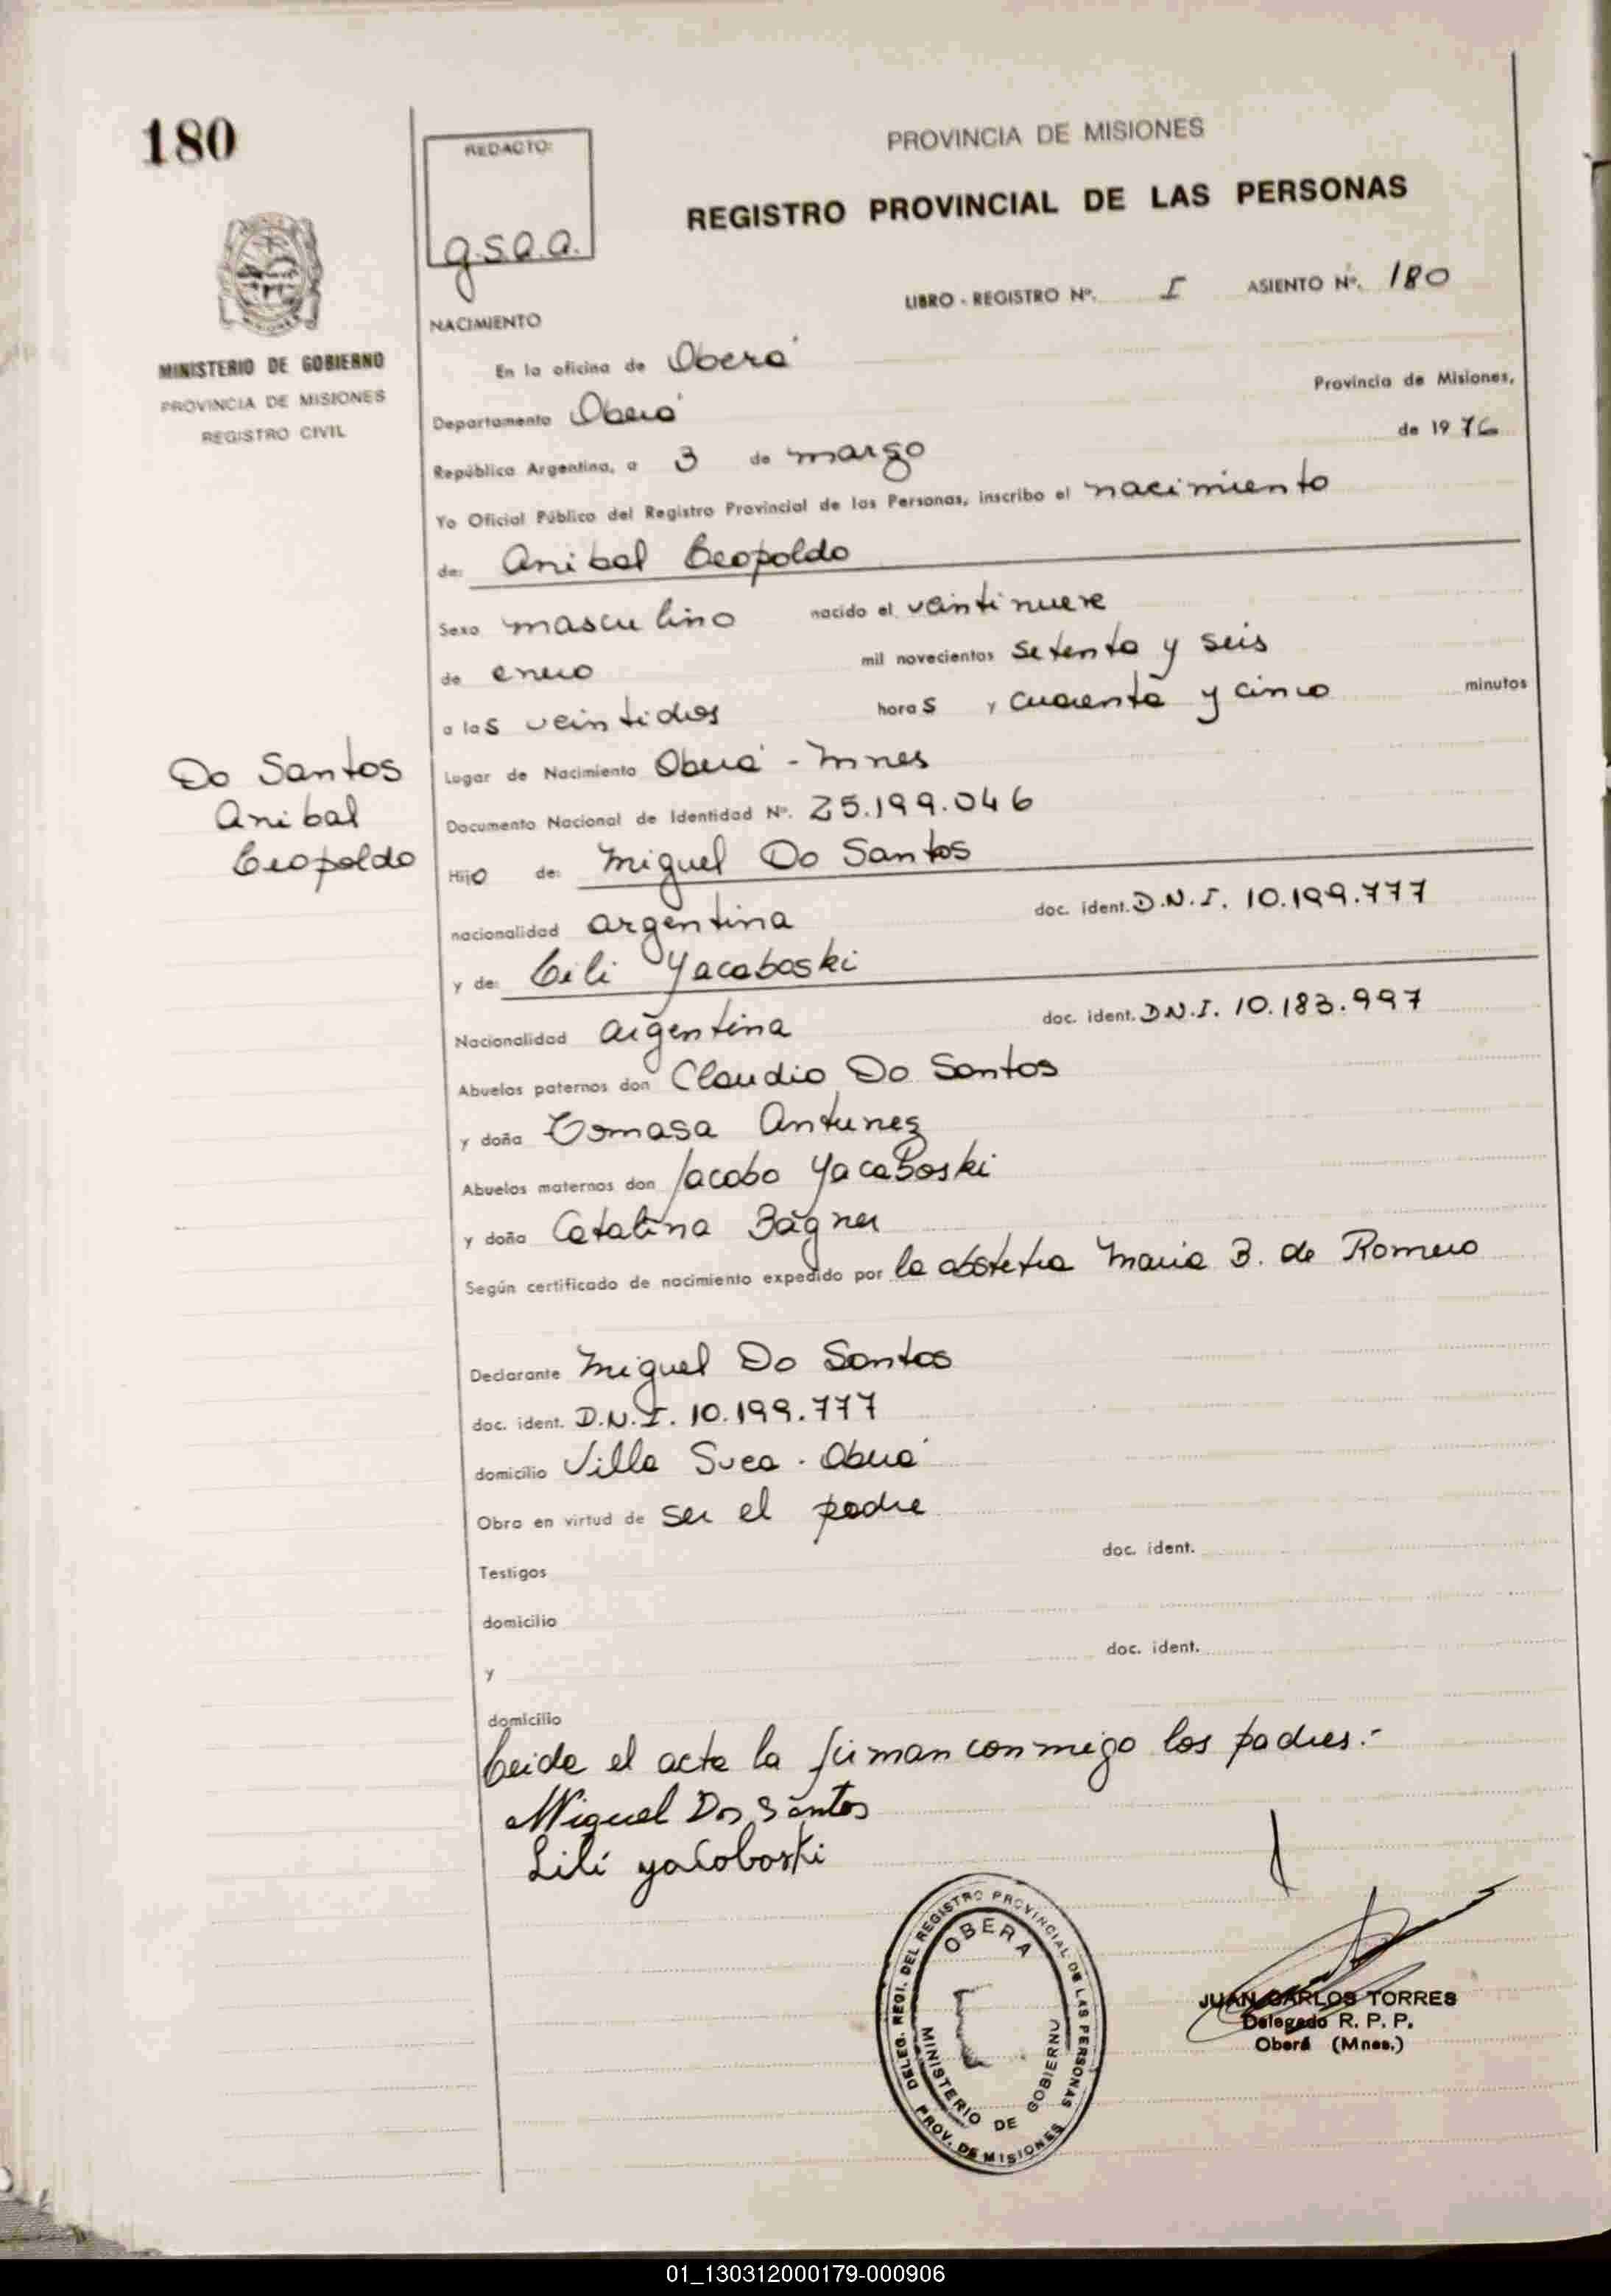 180
REDACTO:
g.s.a.a.
PROVINCIA DE MISIONES
REGISTRO PROVINCIAL DE LAS PERSONAS
LIBRO - REGISTRO Nº. I ASIENTO Nº. 180
MINISTERIO DE GOBIERNO
PROVINCIA DE MISIONES
REGISTRO CIVIL
NACIMIENTO
En la oficina de Oberá
Provincia de Misiones,
Departamento Oberá
República Argentina, a 3 de marzo de 1976
Yo Oficial Público del Registro Provincial de las Personas, inscribo el nacimiento
de: Anibal Leopoldo
Sexo masculino nacido el veintinueve
de enero mil novecientos setenta y seis
a las veintidos horas y cuarenta y cinco minutos
Lugar de Nacimiento Oberá - Mnes
Documento Nacional de Identidad Nº. 25.199.046
Do Santos
Anibal
Leopoldo
Hijo de: Miguel Do Santos
nacionalidad argentina doc. ident. D.N.I. 10.199.777
y de: Lili Yacaboski
Nacionalidad argentina doc. ident. D.N.I. 10.183.997
Abuelos paternos don Claudio Do Santos
y doña Tomasa Antunez
Abuelos maternos don Jacobo Yacaboski
y doña Catalina Bagner
Según certificado de nacimiento expedido por la obstetra Maria B. de Romero
Declarante Miguel Do Santos
doc. ident. D.N.I. 10.199.777
domicilio Villa Svea - Oberá
Obra en virtud de ser el padre
Testigos doc. ident.
domicilio
y doc. ident.
domicilio
Leida el acta la firman conmigo los padres.-
Miguel Dos Santos
Lili yacoboski
DELEG. REGI. DEL REGISTRO PROVINCIAL DE LAS PERSONAS
OBERA
MINISTERIO DE GOBIERNO
PROV. DE MISIONES
JUAN CARLOS TORRES
Delegado R. P. P.
Oberá (Mnes.)
01_130312000179-000906